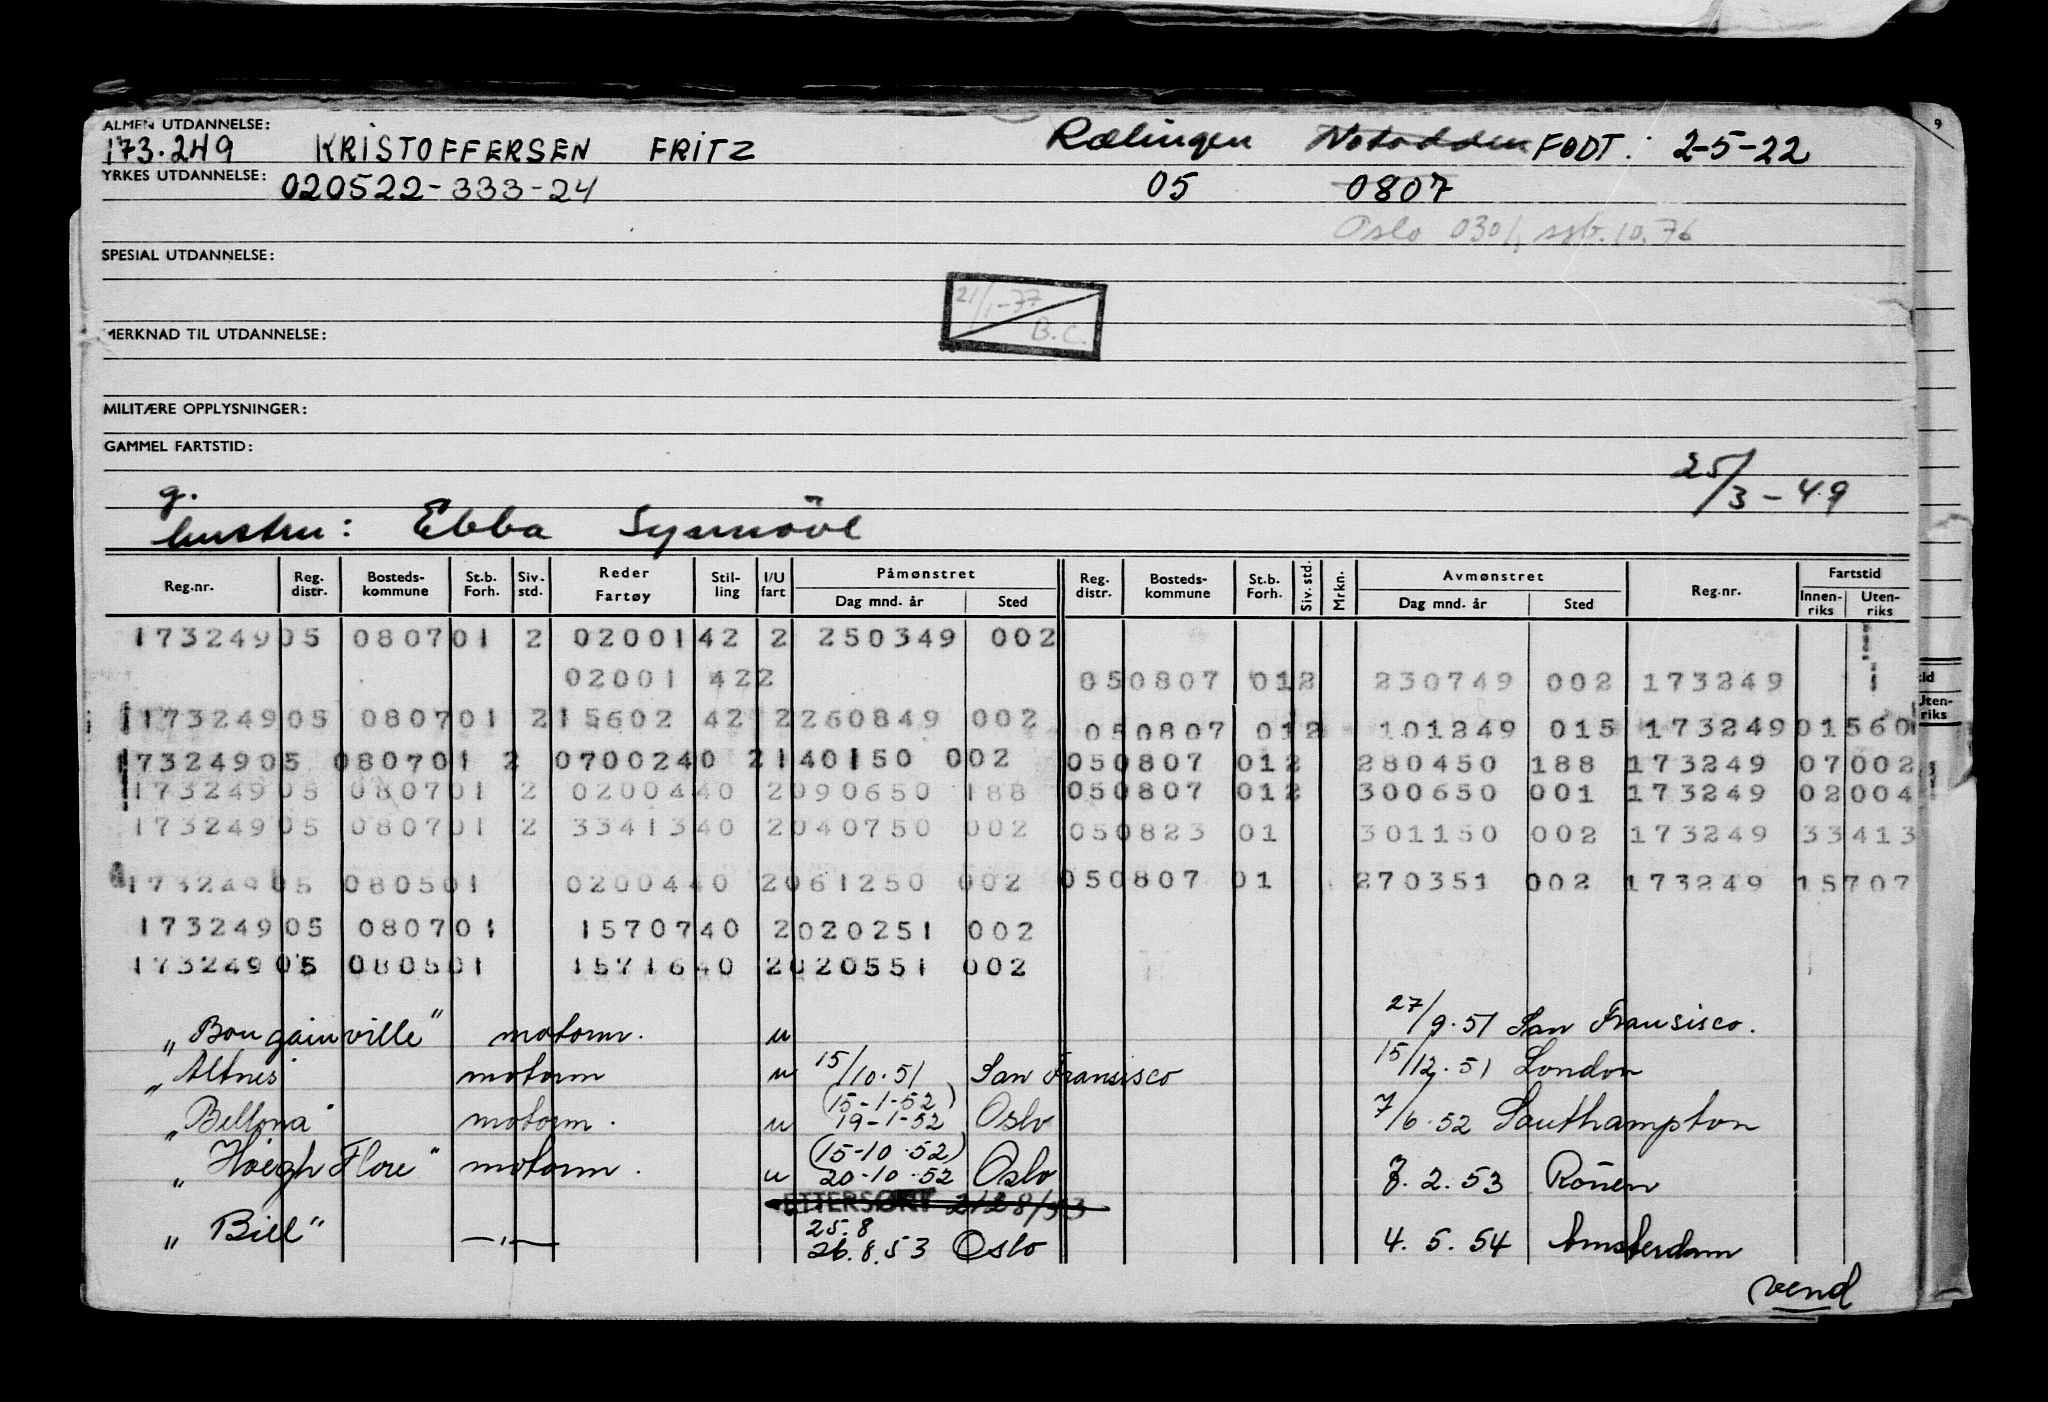 ALMEN UTDANNELSE:
173.249 KRISTOFFERSEN FRITZ Rælingen Notodden FØDT: 2-5-22
YRKES UTDANNELSE: 020522-333-24 05 0807
Oslo 0301, ssb. 10.76
SPESIAL UTDANNELSE:
21/1-77 B.C.
MERKNAD TIL UTDANNELSE:
MILITÆRE OPPLYSNINGER:
GAMMEL FARTSTID:
25/3-49
g.
hustru: Ebba Synnöve
Reg.nr. Reg. distr. Bosteds-kommune St.b. Forh. Siv. std. Reder Fartøy Stil-ling I/U fart Påmønstret Dag mnd. år Sted Reg. distr. Bosteds-kommune St.b. Forh. Siv. std. Mrkn. Avmønstret Dag mnd. år Sted Reg.nr. Fartstid Innen-riks Uten-riks
173249 05 0807 01 2 02001 42 2 250349 002
02001 42 2 05 0807 01 2 230749 002 173249
173249 05 0807 01 2 15602 42 2 260849 002 05 0807 01 2 101249 015 173249 01560
173249 05 0807 01 2 07002 40 2 140150 002 05 0807 01 2 280450 188 173249 07002
173249 05 0807 01 2 02004 40 2 090650 188 05 0807 01 2 300650 001 173249 02004
173249 05 0807 01 2 33413 40 2 040750 002 05 0823 01 301150 002 173249 33413
173249 05 0805 01 02004 40 2 061250 002 05 0807 01 270351 002 173249 15707
173249 05 0807 01 15707 40 2 020251 002
173249 05 0805 01 15716 40 2 020551 002
„Bougainville" motorm. u 27/9.51 San Fransisco.
„Altnes motorm u 15/10.51 San Fransisco 15/12.51 London
(15-1-52)
„Bellona" motorm. u 19-1-52 Oslo 7/6.52 Southampton
(15-10.52)
„Høegh Flore" motorm. u 20-10.52 Oslo 7. 2. 53 Rouen
ETTERSØKT
25.8
„Bill" —„— 26.8.53 Oslo 4. 5. 54 Amsterdam
vend